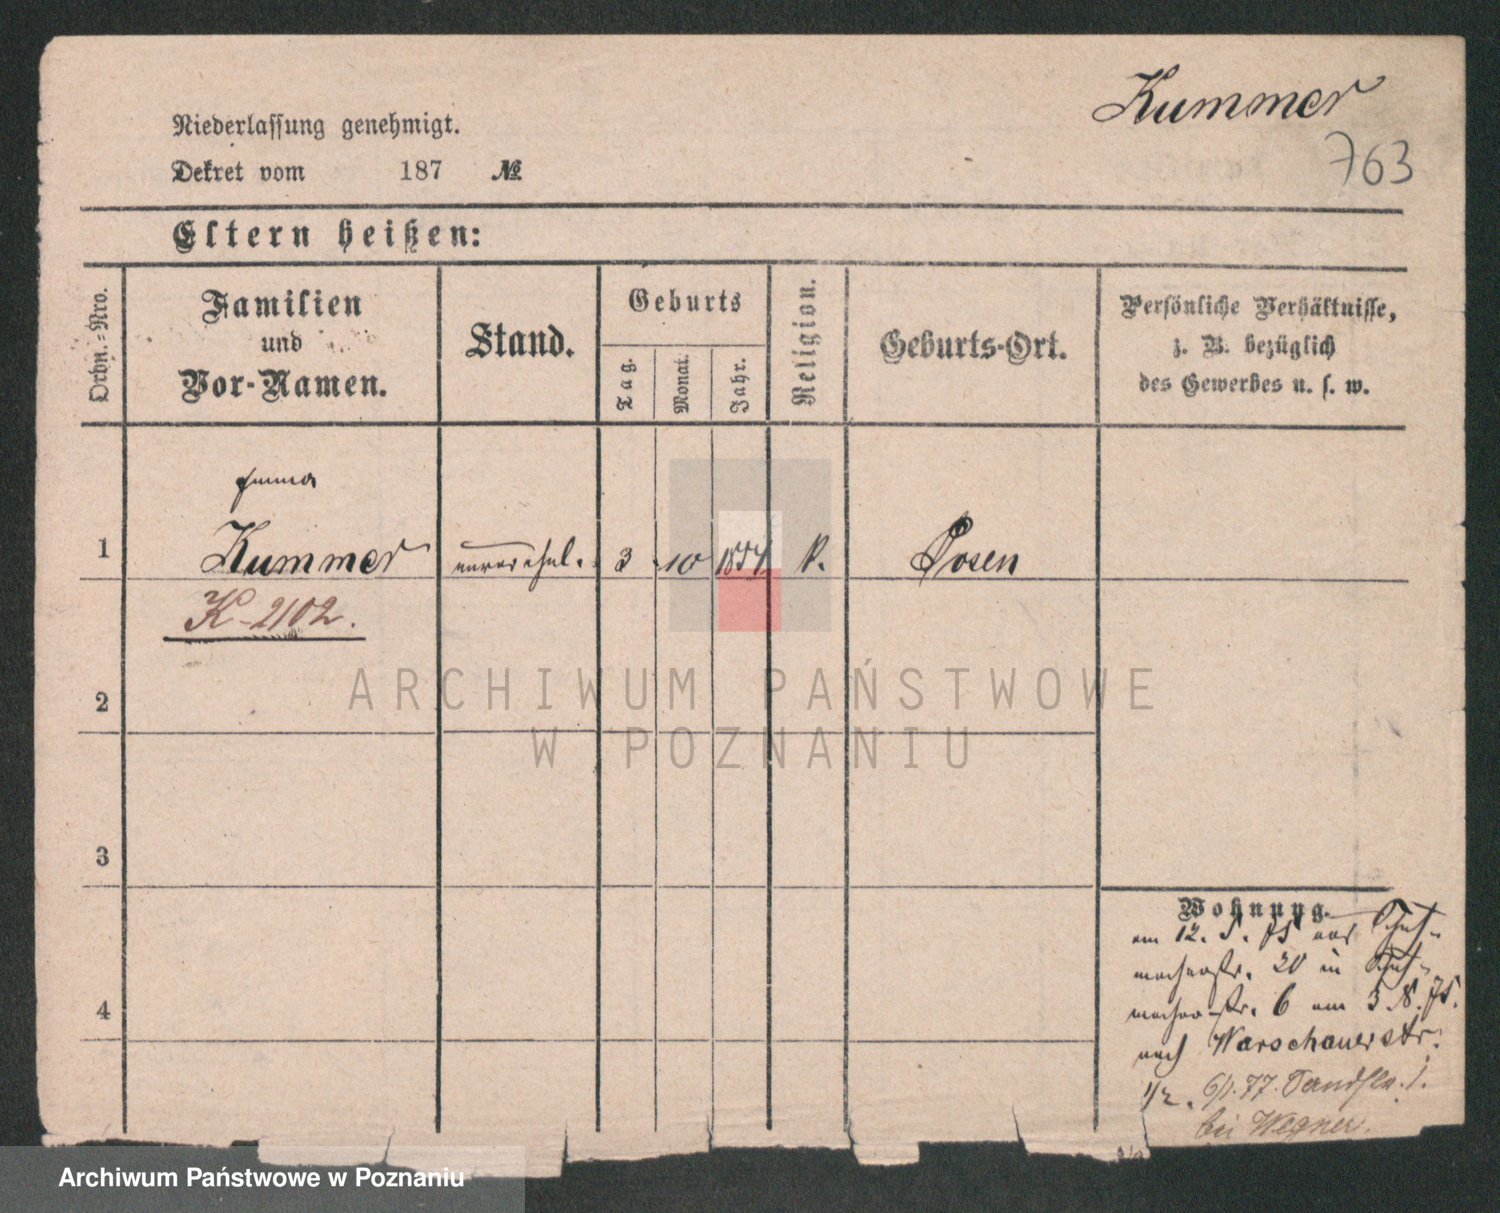 Kummer
763
Niederlassung genehmigt.
Dekret vom 187 №
Eltern heißen:
Ordn.-Nro.
Familien
und
Vor-Namen.
Stand.
Geburts
Tag.
Monat.
Jahr.
Religion.
Geburts-Ort.
Persönliche Verhältnisse,
z. B. bezüglich
des Gewerbes u. s. w.
Emma
1 Kummer unverehel. 3 10 1854 k. Posen
K-2102.
2
3
4
Wohnung.
am 12. 5. 75 aus Schuh-
macherstr. 20 in Schuh-
macherstr. 6 am 3. 8. 75.
nach Warschauerstr.
1/2. 6/1. 77. 1.
bei Wegner.
ARCHIWUM PAŃSTWOWE
W POZNANIU
Archiwum Państwowe w Poznaniu